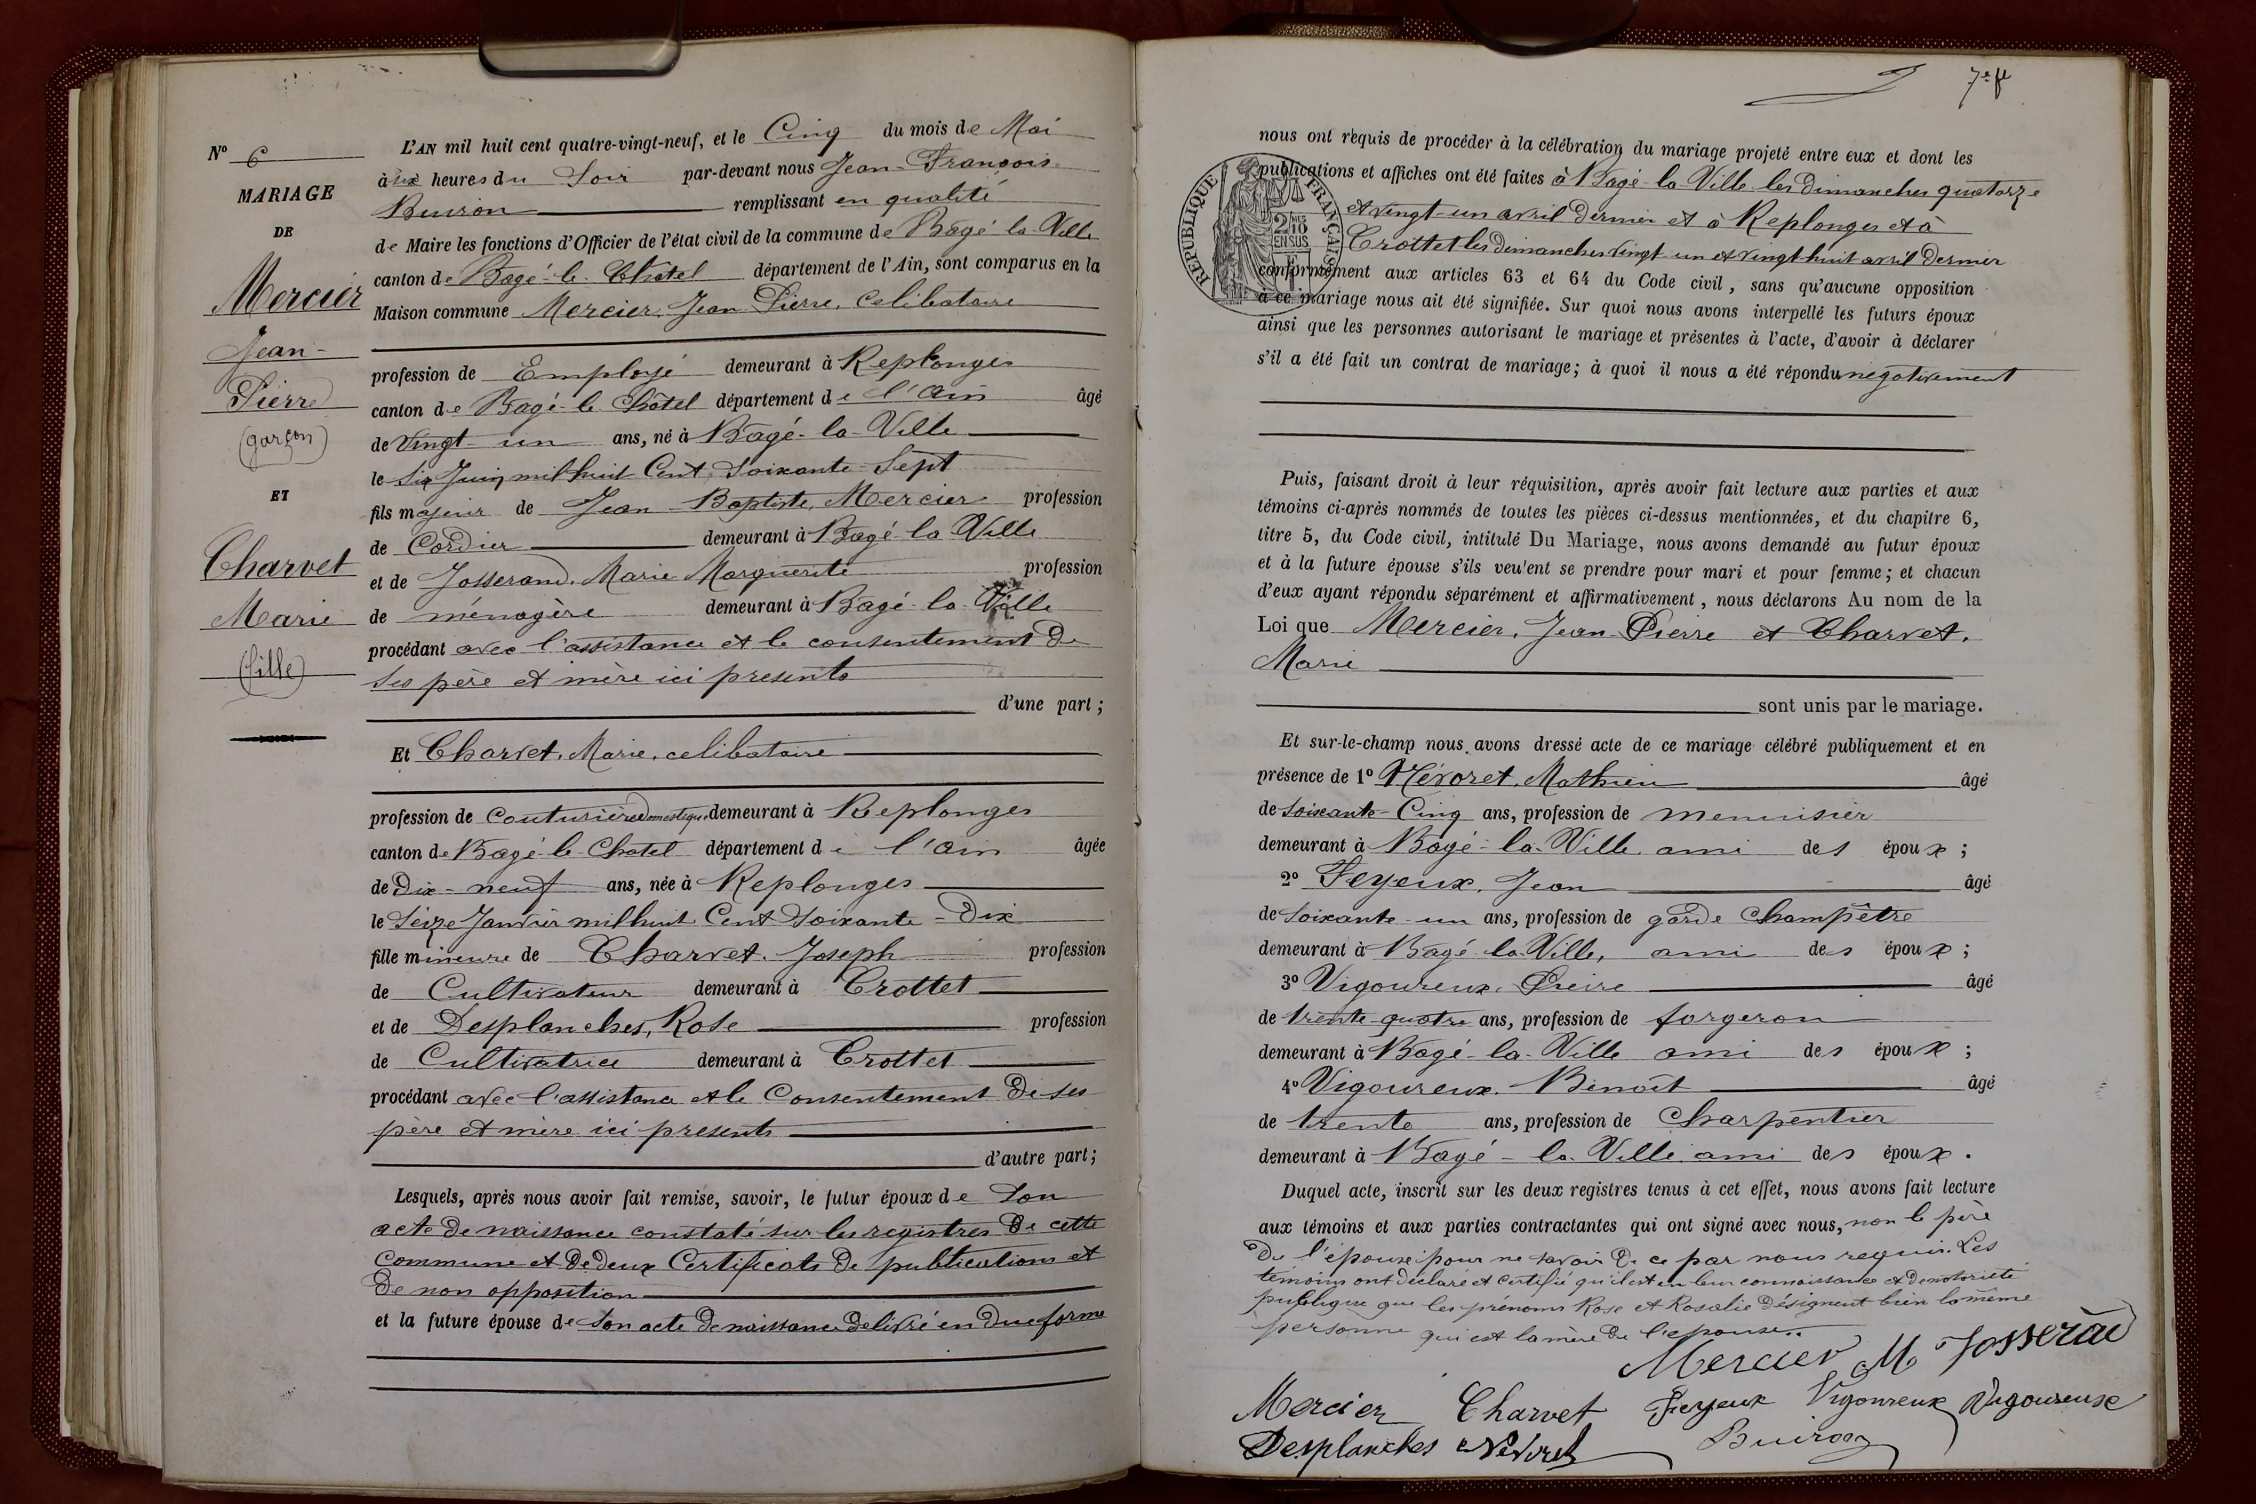 L'AN mil huit cent quatre-vingt-neuf, et le Cinq du mois de Mai
N° 6
à heures du Soir par-devant nous Jean-François
MARIAGE
Buiron remplissant en qualité
DE
de Maire les fonctions d'Officier de l'état civil de la commune de Bagé-la-Ville
canton de Bagé-le-Chatel département de l'Ain, sont comparus en la
Mercier
Maison commune Mercier, Jean Pierre, celibataire
Jean-
profession de Employé demeurant à Replonges
Pierre
canton de Bagé-le-Châtel département de l'Ain âgé
(garçon)
de Vingt-un ans, né à Bagé-la-Ville
le Six Juin mil huit Cent Soixante-Sept
ET
fils majeur de Jean-Baptiste Mercier profession
de Cordier demeurant à Bagé-la Ville
Charvet
et de Josserand, Marie Marguerite profession
Marie
de ménagère demeurant à Bagé-la-Ville
procédant avec l'assistance et le consentement de
(fille)
ses père et mère ici presents
d'une part ;
Et Charvet, Marie, celibataire
profession de Couturière Domestique demeurant à Replonges
canton de Bagé-le-Chatel département de l'Ain âgée
de Dix-neuf ans, née à Replonges
le Seize Janvier mil huit Cent Soixante-Dix
fille mineure de Charvet, Joseph profession
de Cultivateur demeurant à Crottet
et de Desplanches, Rose profession
de Cultivatrice demeurant à Crottet
procédant avec l'assistance et le Consentement de ses
père et mère ici presents
d'autre part ;
Lesquels, après nous avoir fait remise, savoir, le futur époux de Son
acte de naissance constaté sur les registres de cette
commune et de deux Certificats de publications et
de non opposition
et la future épouse de Son acte de naissance délivré en due forme
nous ont requis de procéder à la célébration du mariage projeté entre eux et dont les
publications et affiches ont été faites à Bagé-la-Ville les dimanches quatorze
et vingt-un avril dernier et à Replonges et à
Crottet les dimanches vingt-un et vingt-huit avril dernier
conformément aux articles 63 et 64 du Code civil, sans qu'aucune opposition
à ce mariage nous ait été signifiée. Sur quoi nous avons interpellé les futurs époux
ainsi que les personnes autorisant le mariage et présentes à l'acte, d'avoir à déclarer
s'il a été fait un contrat de mariage ; à quoi il nous a été répondu négativement
RÉPUBLIQUE FRANÇAISE
2/10 EN SUS
Puis, faisant droit à leur réquisition, après avoir fait lecture aux parties et aux
témoins ci-après nommés de toutes les pièces ci-dessus mentionnées, et du chapitre 6,
titre 5, du Code civil, intitulé Du Mariage, nous avons demandé au futur époux
et à la future épouse s'ils veulent se prendre pour mari et pour femme ; et chacun
d'eux ayant répondu séparément et affirmativement, nous déclarons Au nom de la
Loi que Mercier, Jean-Pierre et Charvet,
Marie
sont unis par le mariage.
Et sur-le-champ nous avons dressé acte de ce mariage célébré publiquement et en
présence de 1° Névoret, Mathieu âgé
de Soixante-Cinq ans, profession de menuisier
demeurant à Bagé-la-Ville ami des époux ;
2° Feyeux, Jean âgé
de Soixante-un ans, profession de garde Champêtre
demeurant à Bagé-la-Ville, ami des époux ;
3° Vigoureux, Pierre âgé
de trente-quatre ans, profession de forgeron
demeurant à Bagé-la-Ville ami des époux ;
4° Vigoureux, Benoît âgé
de trente ans, profession de Charpentier
demeurant à Bagé-la-Ville ami des époux.
Duquel acte, inscrit sur les deux registres tenus à cet effet, nous avons fait lecture
aux témoins et aux parties contractantes qui ont signé avec nous, non le père
de l'épouse pour ne savoir de ce par nous requis. Les
témoins ont déclaré et certifié qu'il est en leur connaissance et de notoriété
publique que les prénoms Rose et Rosalie désignent bien la même
personne qui est la mère de l'épouse.
Mercier M Josserand
Mercier Charvet Feyeux Vigoureux Vigoureux
Desplanches Nevoret Buiron